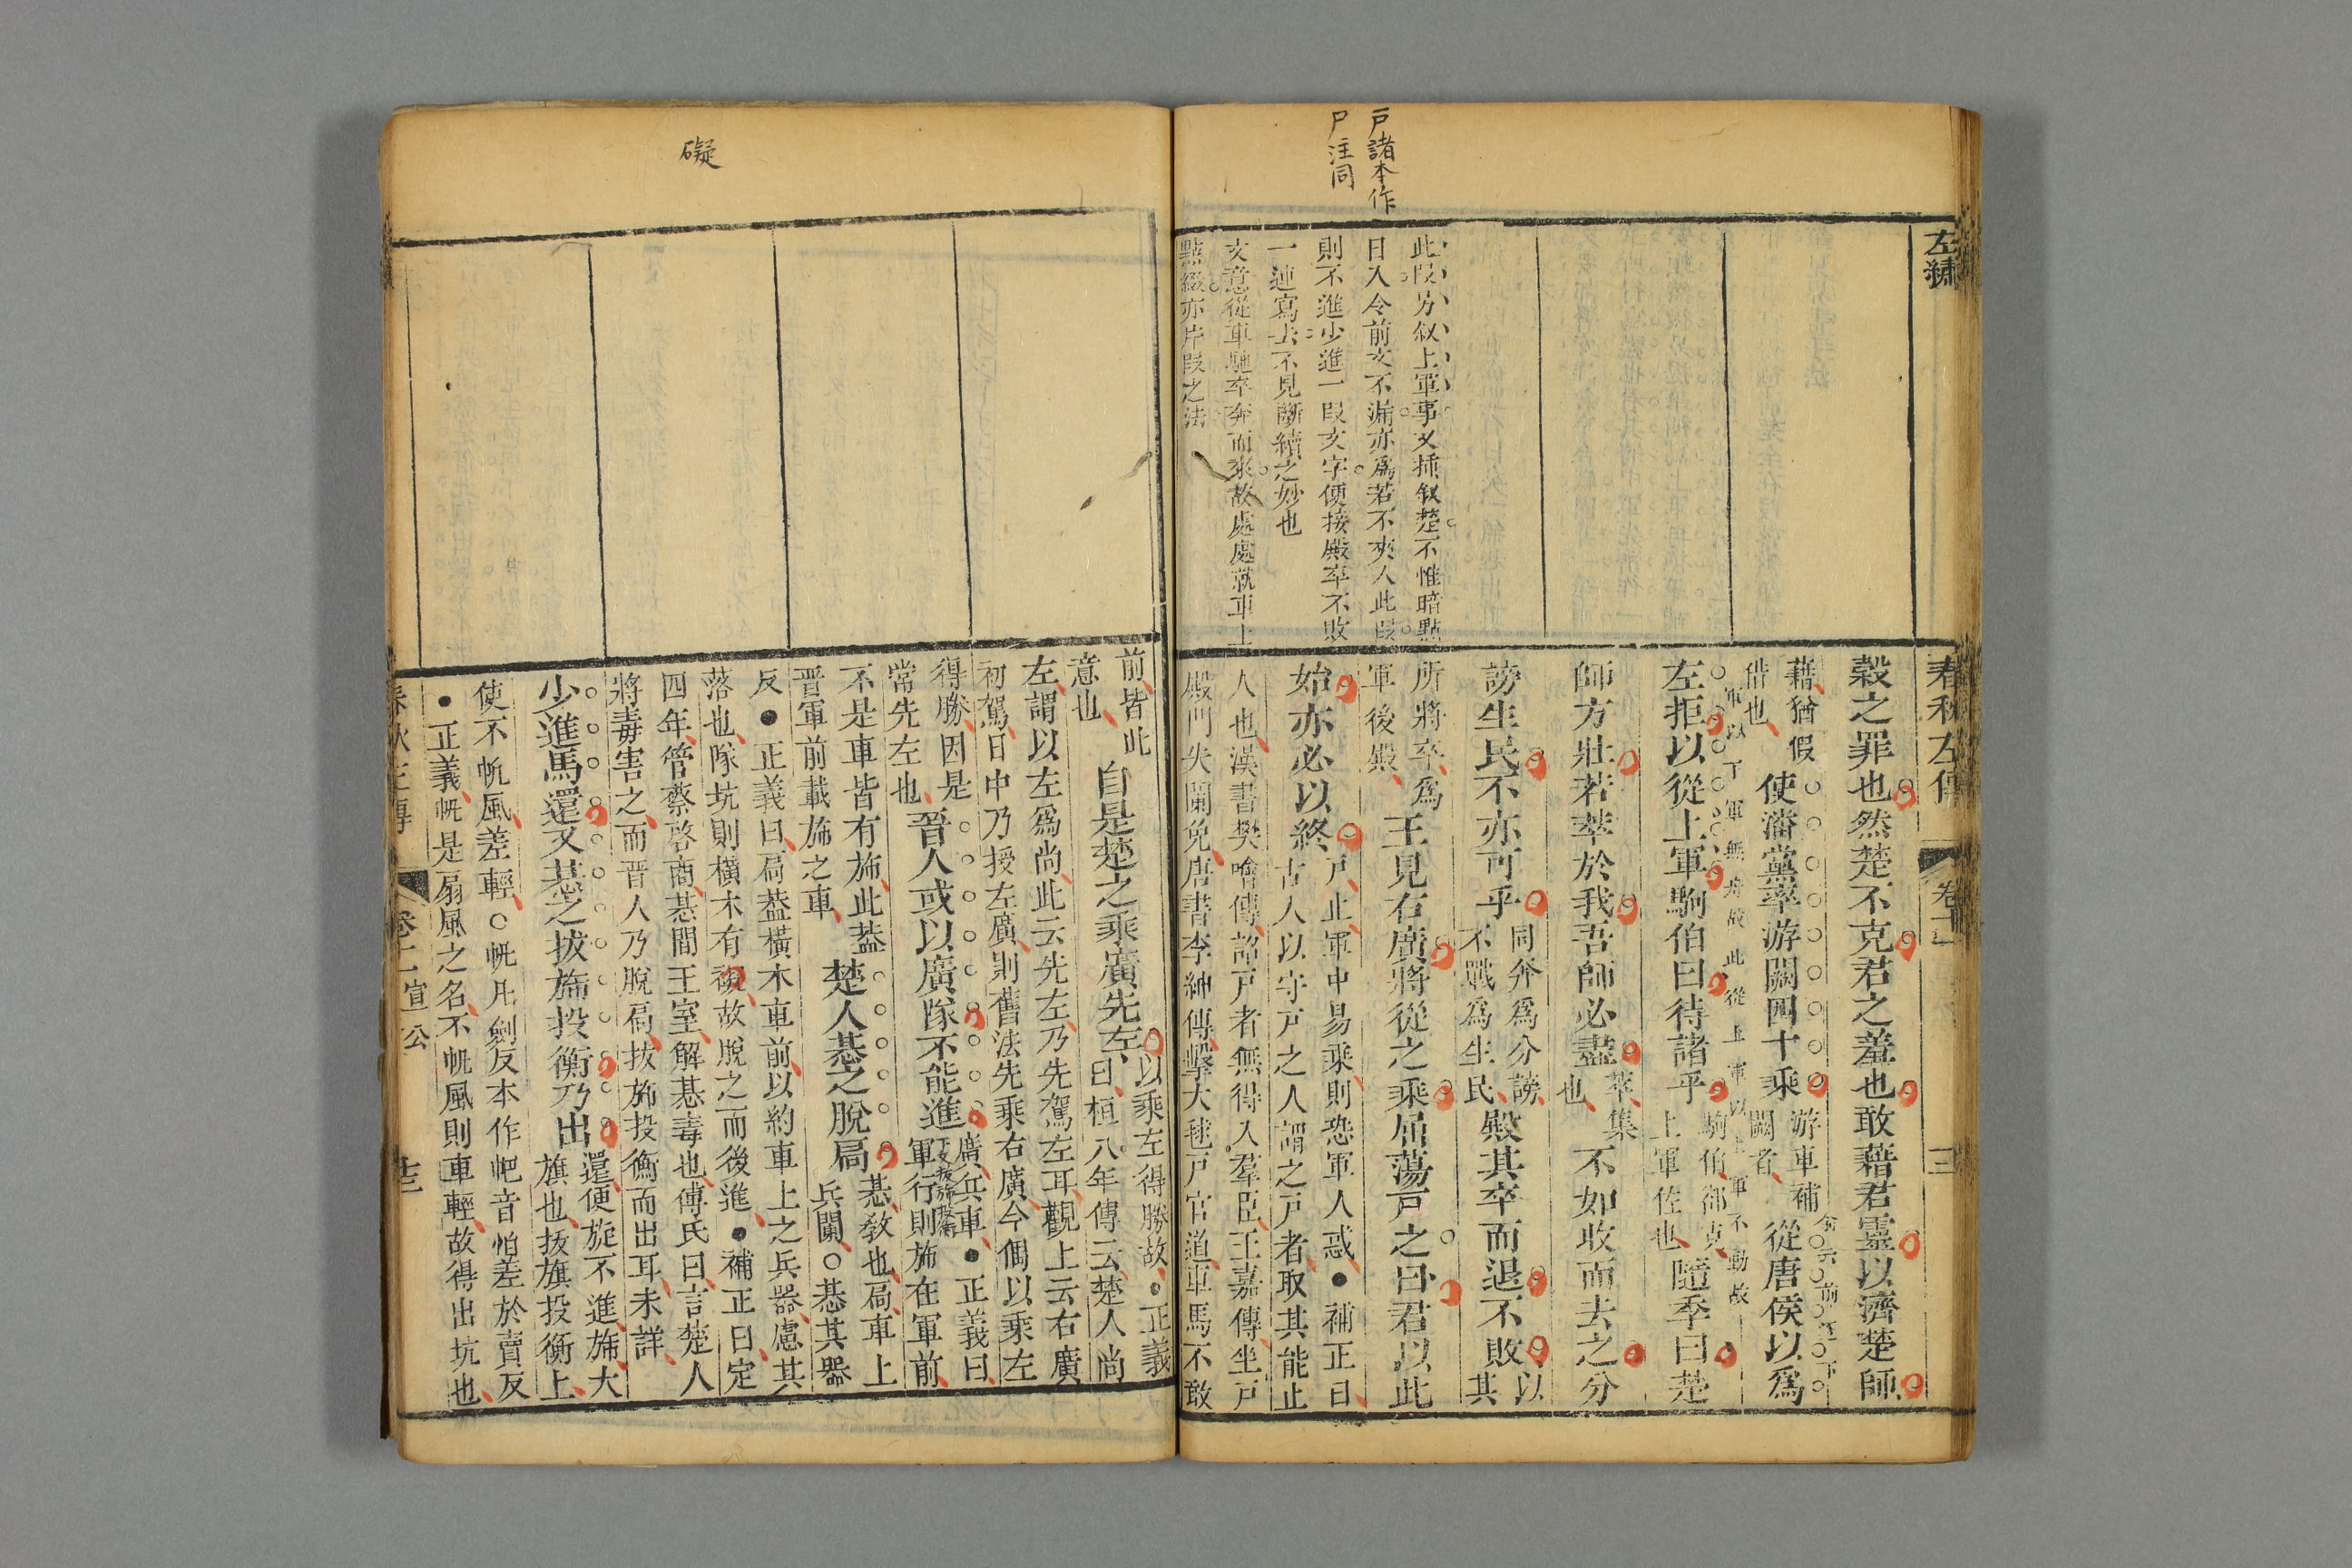 戶諸本作
尸注同
左繡
此段另叙上軍事又插叙楚不惟暗點
日入令前文不漏亦爲若不夾入此段
則不進少進一段文字便接殿卒不敗
一連寫去不見斷續之妙也
文意從車馳卒奔而來故處處就車上
點綴亦片段之法
春秋左傳
卷十一
三
穀之罪也然楚不克君之羞也敢藉君靈以濟楚師
藉猶假
借也
使潘黨率游闕四十乘
游車補
闕者
從唐侯以爲
左拒以從上軍駒伯曰待諸乎
駒伯郤克
上軍佐也
隨季曰楚
師方壯若萃於我吾師必盡
萃集
也
不如收而去之分
謗生民不亦可乎
同奔爲分謗
不戰爲生民
殿其卒而退不敗
以其
所將卒爲
軍後殿
王見右廣將從之乘屈蕩戶之曰君以此
始亦必以終
戶止軍中易乘則恐軍人惑●補正曰
古人以守戶之人謂之戶者取其能止
人也漢書樊噲傳詔戶者無得入羣臣王嘉傳坐戶
殿門失闌免唐書李紳傳擊大毬戶官道車馬不敢
前皆此
意也
自是楚之乘廣先左
以乘左得勝故●正義
曰桓八年傳云楚人尚
左謂以左爲尚此云先左乃先駕左耳觀上云右廣
初駕日中乃授左廣則舊法先乘右廣今個以乘左
得勝因是
常先左也
晉人或以廣隊不能進
廣兵車●正義曰
軍行則斾在軍前
不是車皆有斾此葢
晉軍前載斾之車
楚人惎之脫扃
惎敎也扃車上
兵闌○惎其器
反●正義曰扃葢橫木車前以約車上之兵器慮其
落也隊坑則橫木有礙故脫之而後進●補正曰定
四年管蔡啓商惎間王室解惎毒也傅氏曰言楚人
將毒害之而晉人乃脫扃拔斾投衡而出耳未詳
少進馬還又惎之拔斾投衡乃出
還便旋不進斾大
旗也拔旗投衡上
使不帆風差輕○帆凡劍反本作帊音怕差於賣反
●正義帆是扇風之名不帆風則車輕故得出坑也
礙
春秋左傳
卷十一宣公
十三